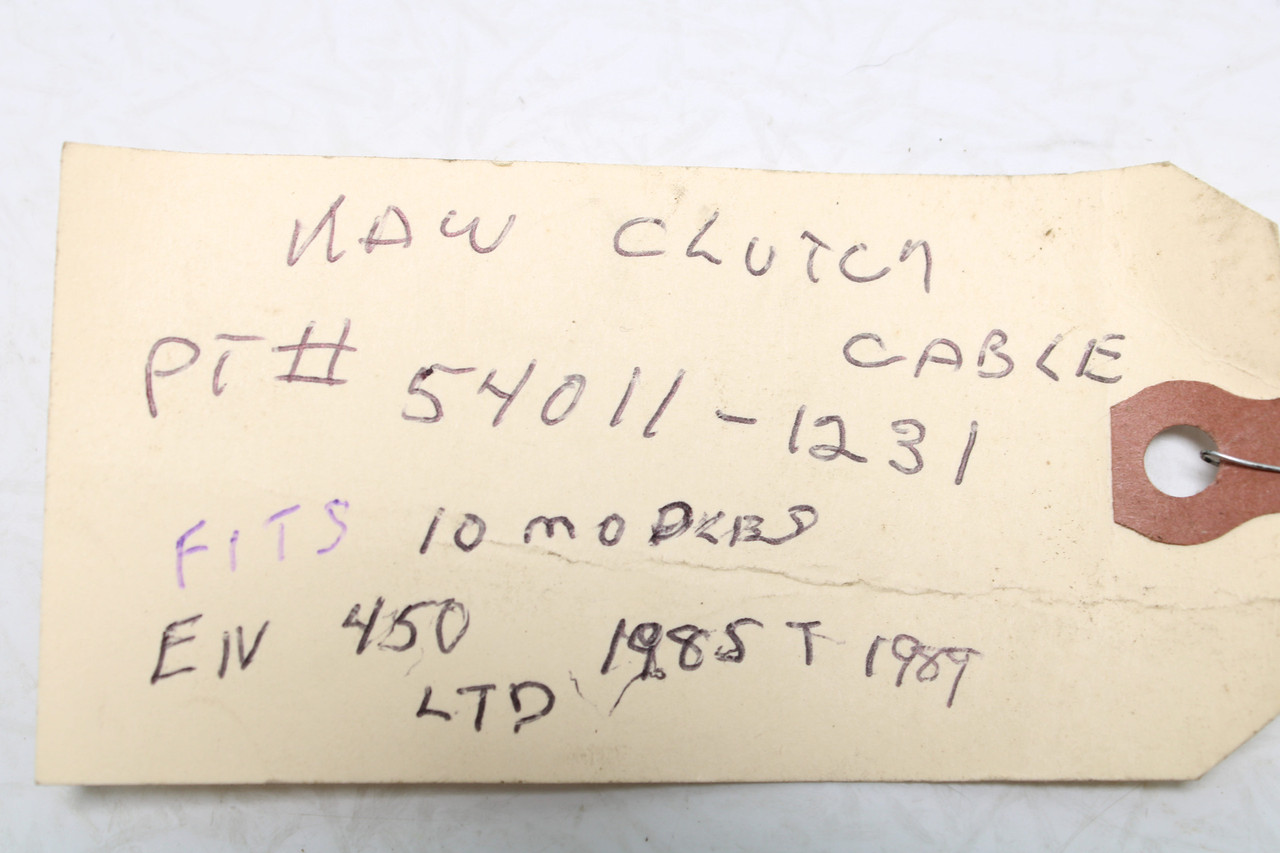 KAW CLUTCH
CABLE
PT # 54011-1231
FITS 10 MODLES
EN 450 1985 T 1989
LTD